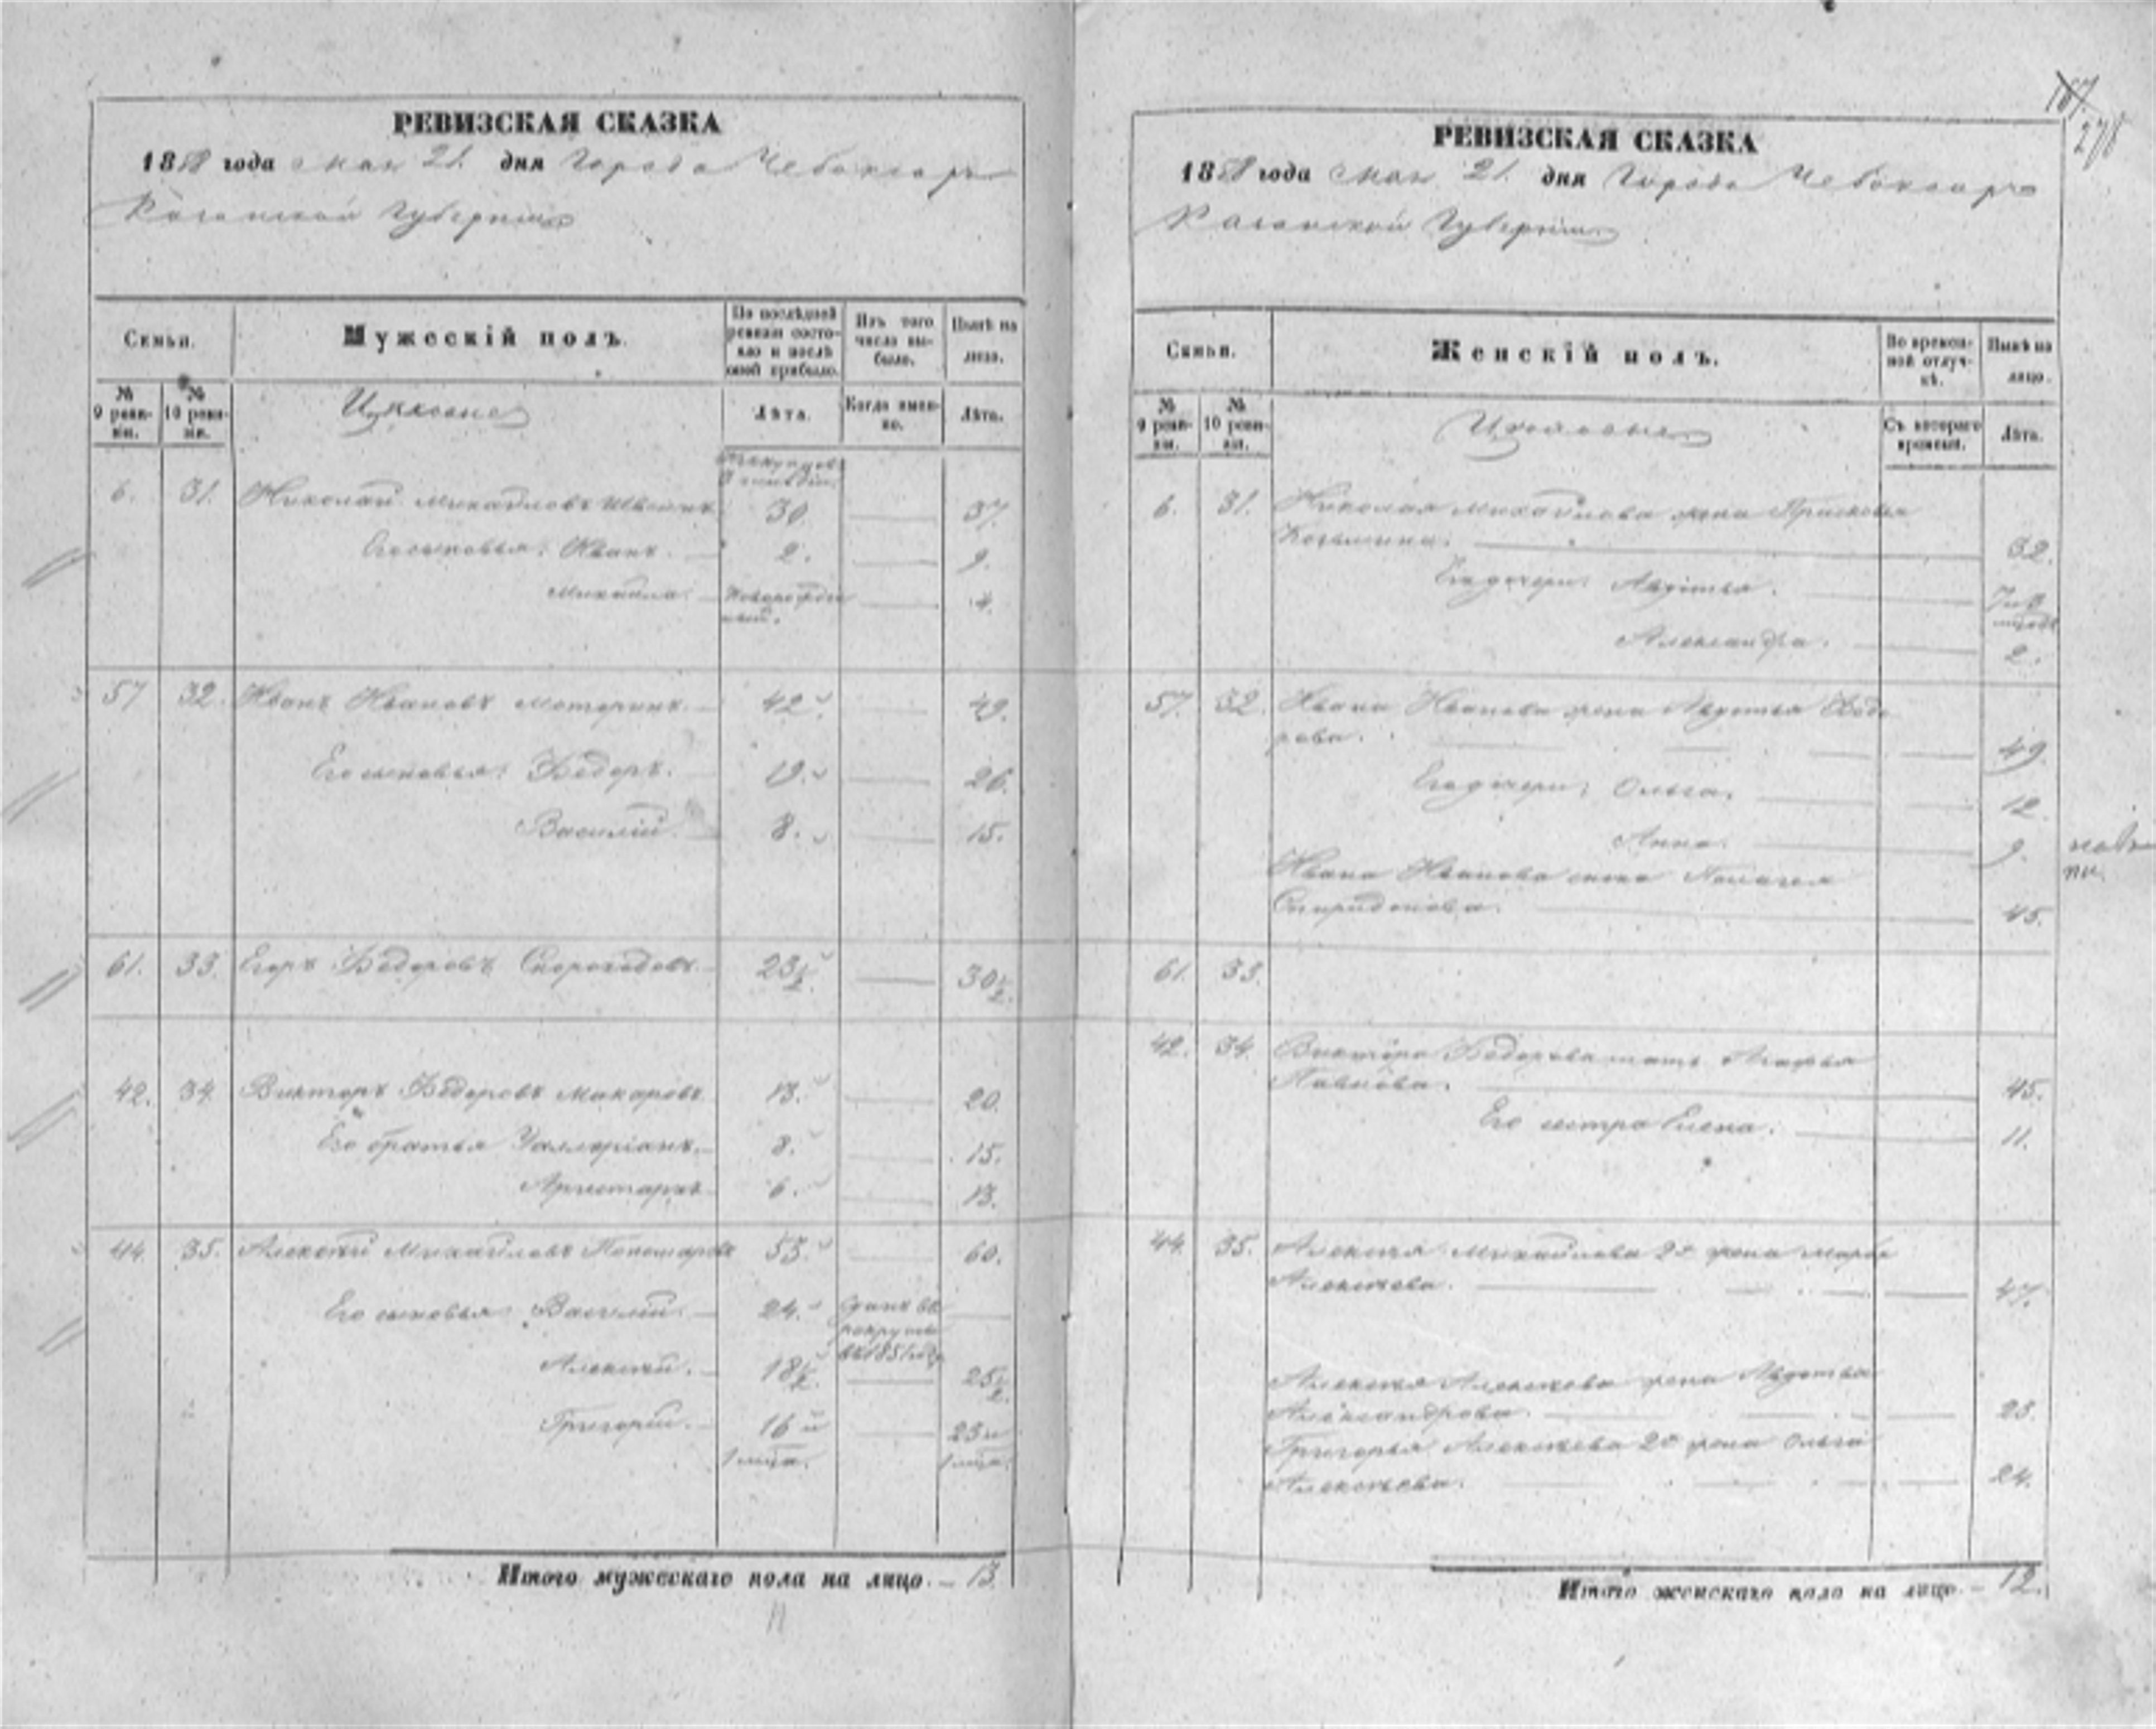 РЕВИЗСКАЯ СКАЗКА
1858 года мая 21. дня Города Чебоксаръ
Казанской Губернии
Семьи.
Мужескій полъ.
По послѣдней ревизіи состояло и послѣ оной прибыло.
Изъ того числа выбыло.
Нынѣ на лицо.
№ 9 ревизіи.
№ 10 ревизіи.
Цеховые
Лѣта.
Когда именно.
Лѣта.
6. 31. Николай Михайловъ 30 37.
Его сыновья: Иванъ. 2. 9.
Михайла. новорожденный. 4.
57 32. Иванъ Ивановъ Моторинъ. 42. 49.
Его сыновья: Ѳедоръ. 19. 26.
Василій. 8. 15.
61. 33. Егоръ Ѳедоровъ Скороходовъ. 23½ 30½
42. 34. Викторъ Ѳедоровъ Макаровъ. 13. 20.
Его братья Уаллеріанъ. 8. 15.
Аристархъ 6. 13.
44. 35. Алексѣй Михайловъ 53. 60.
Его сыновья: Василій. 24. сданъ въ рекруты въ 1851 году
Алексѣй. 18½ 25½
Григорій. 16 и 23 и
1 мѣсц. 1 мѣсц.
Итого мужескаго пола на лицо. 13.
11
167
278
РЕВИЗСКАЯ СКАЗКА
1858 года мая 21. дня Города Чебоксаръ
Казанской Губерніи
Семьи.
Женскій полъ.
Во временной отлучкѣ.
Нынѣ на лицо.
№ 9 ревизіи.
№ 10 ревизіи.
Цеховые
Съ котораго времени.
Лѣта.
6. 31. Николая Михайлова жена Прасковья
Козьмина. 32.
Его дочери: Авдотья. 7 и
Александра. 2.
57. 32. Ивана Иванова жена Авдотья Ѳедо
рова. 49.
Его дочери: Ольга. 12.
Анна. 9.
Ивана Иванова Палагея
Спиридонова. 45.
61. 33.
42. 34. Виктора Ѳедорова мать Агафья
Павлова. 45.
Его сестра Елена. 11.
44. 35. Алексѣя Михайлова 2я жена Марья
Алексѣева. 47.
Алексѣя Алексѣева жена Авдотья
Александрова. 23.
Григорья Алексѣева 2я жена Ольга
Алексѣева. 24.
Итого женскаго пола на лицо. 12.